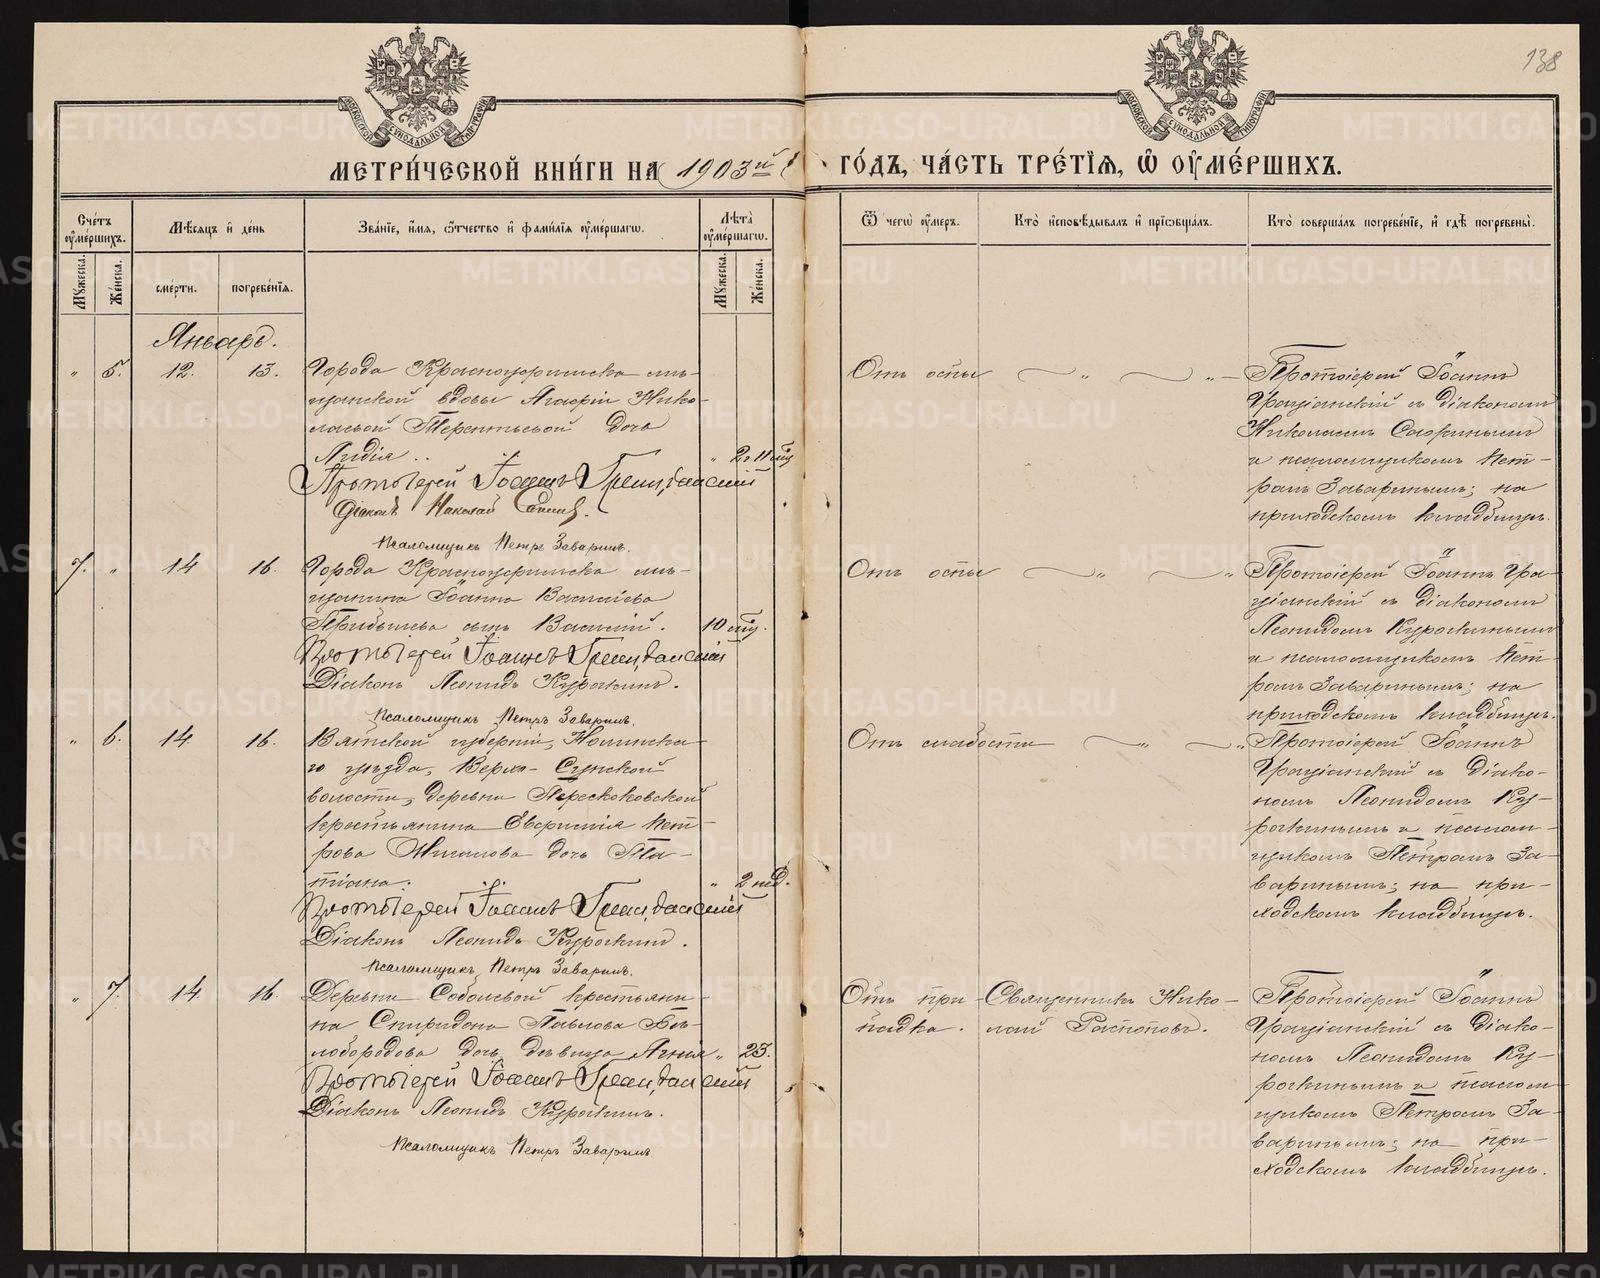 138
МЕТРИ́ЧЕСКОЙ КНИ́ГИ НА 1903й
ГО́ДЪ, ЧА́СТЬ ТРЕ́ТІѦ, Ѡ҆ ОУ҆МЕ́РШИХЪ.
МОСКОВСКОЙ СѴНОДАЛЬНОЙ ТИПОГРАФІИ
МОСКОВСКОЙ СѴНОДАЛЬНОЙ ТИПОГРАФІИ
Сче́тъ оу҆ме́ршихъ.
Мꙋ́жеска.
Же́нска.
Мѣ́сѧцъ и҆ де́нь
сме́рти.
погребе́нїѧ.
Зва́нїе, и҆́мѧ, ѻ҆́тчество и҆ фами́лїѧ оу҆ме́ршагѡ.
Лѣ́та оу҆ме́ршагѡ.
Мꙋ́жеска.
Же́нска.
Ѿ чегѡ̀ оу҆́меръ.
Кто̀ и҆сповѣ́дывалъ и҆ прїѡбща́лъ.
Кто̀ соверша́лъ погребе́нїе, и҆ гдѣ̀ погребены̀.
Январь.
" 5. 12. 13.
Города Красноуфимска мѣ-
щанской вдовы Агафіи Нико-
лаевой Терентьевой дочь
Лидія .. " 2 г 11 мѣс
Протоіерей Іоаннъ Граціанскій
Діаконъ Николай
Псаломщикъ Петръ Заваринъ.
Отъ оспы " "
Протоіерей Іоаннъ
Граціанскій съ діакономъ
Николаемъ
и псаломщикомъ Пет-
ромъ Завариннымъ; на
приходскомъ кладбищѣ.
7. " 14 16.
Города Красноуфимска мѣ-
щанина Іоанна Василіева
Прибылева сынъ Василій. 10 мѣс.
Протоіерей Іоаннъ Граціанскій
Діаконъ Леонидъ Курочкинъ.
Псаломщикъ Петръ Заваринъ.
Отъ оспы " "
Протоіерей Іоаннъ Гра-
ціанскій съ діакономъ
Леонидомъ Курочкинымъ
и псаломщикомъ Пет-
ромъ Завариннымъ; на
приходскомъ кладбищѣ.
" 6. 14 16.
Вятской губерніи, Нолинска-
го уѣзда, Верхо-Сунской
волости, деревни Перескоковской
крестьянина Евсригнія Пет-
рова Жигалова дочь Та-
тіана. " 2 нед.
Протоіерей Іоаннъ Граціанскій
Діаконъ Леонидъ Курочкинъ.
Псаломщикъ Петръ Заваринъ.
Отъ слабости " "
Протоіерей Іоаннъ
Граціанскій съ діако-
номъ Леонидомъ Ку-
рочкинымъ и псалом-
щикомъ Петромъ За-
вариннымъ; на при-
ходскомъ кладбищѣ.
" 7. 14 16.
Деревни Соболевой крестьяни-
на Спиридона Павлова Бѣ-
лобородова дочь дѣвица Агнія " 23.
Протоіерей Іоаннъ Граціанскій
Діаконъ Леонидъ Курочкинъ.
Псаломщикъ Петръ Заваринъ
Отъ при-
падка.
Священникъ Нико-
лай Распоповъ.
Протоіерей Іоаннъ
Граціанскій съ діако-
номъ Леонидомъ Ку-
рочкинымъ и псалом-
щикомъ Петромъ За-
вариннымъ; на при-
ходскомъ кладбищѣ.
METRIKI.GASO-URAL.RU